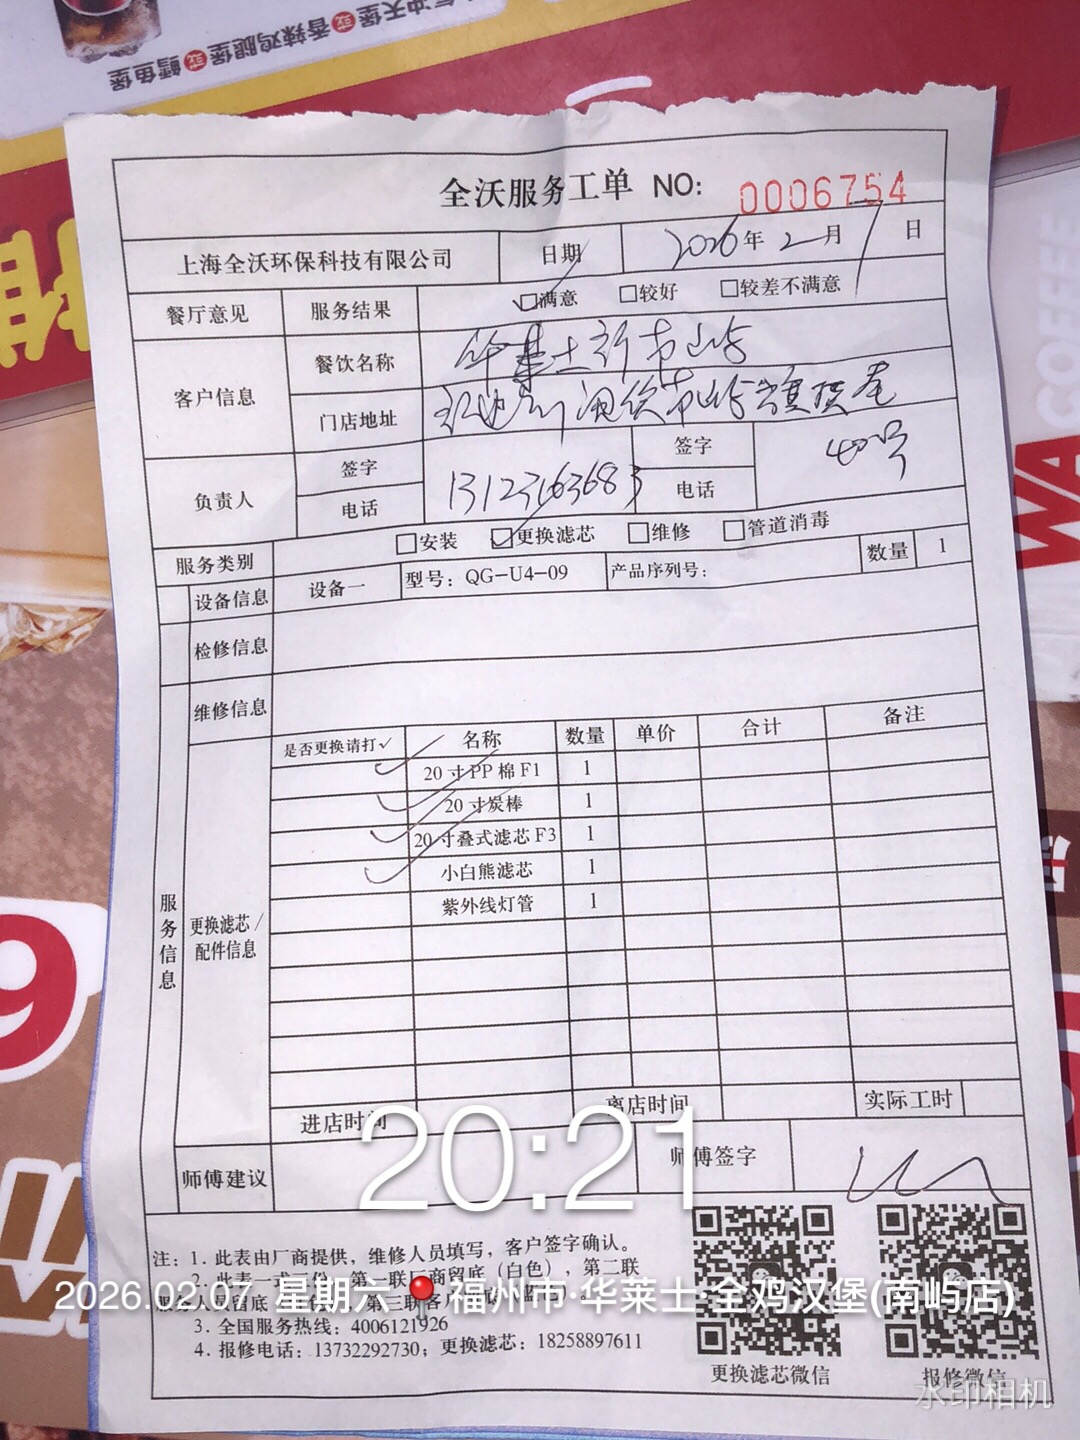 气冲天堡或香辣鸡腿堡或鳕鱼堡
COFFEE
WA
9
全沃服务工单 NO: 0006754
上海全沃环保科技有限公司 日期 2026年2月7日
餐厅意见 服务结果 ☑满意 □较好 □较差不满意
客户信息 餐饮名称 华莱士新南屿
门店地址
负责人 签字 签字 40号
电话 13123163683 电话
服务类别 □安装 ☑更换滤芯 □维修 □管道消毒
设备信息 设备一 型号：QG-U4-09 产品序列号： 数量 1
检修信息
维修信息
服务信息
更换滤芯/配件信息
是否更换请打✓ 名称 数量 单价 合计 备注
✓ 20寸PP棉F1 1
✓ 20寸炭棒 1
✓ 20寸叠式滤芯F3 1
✓ 小白熊滤芯 1
紫外线灯管 1
进店时间 离店时间 实际工时
师傅建议 师傅签字
20:21
注：1. 此表由厂商提供，维修人员填写，客户签字确认。
2. 此表一式三份，第一联厂商留底（白色），第二联
3. 全国服务热线：4006121926
4. 报修电话：13732292730；更换滤芯：18258897611
更换滤芯微信 报修微信
2026.02.07 星期六 福州市·华莱士·全鸡汉堡(南屿店)
水印相机